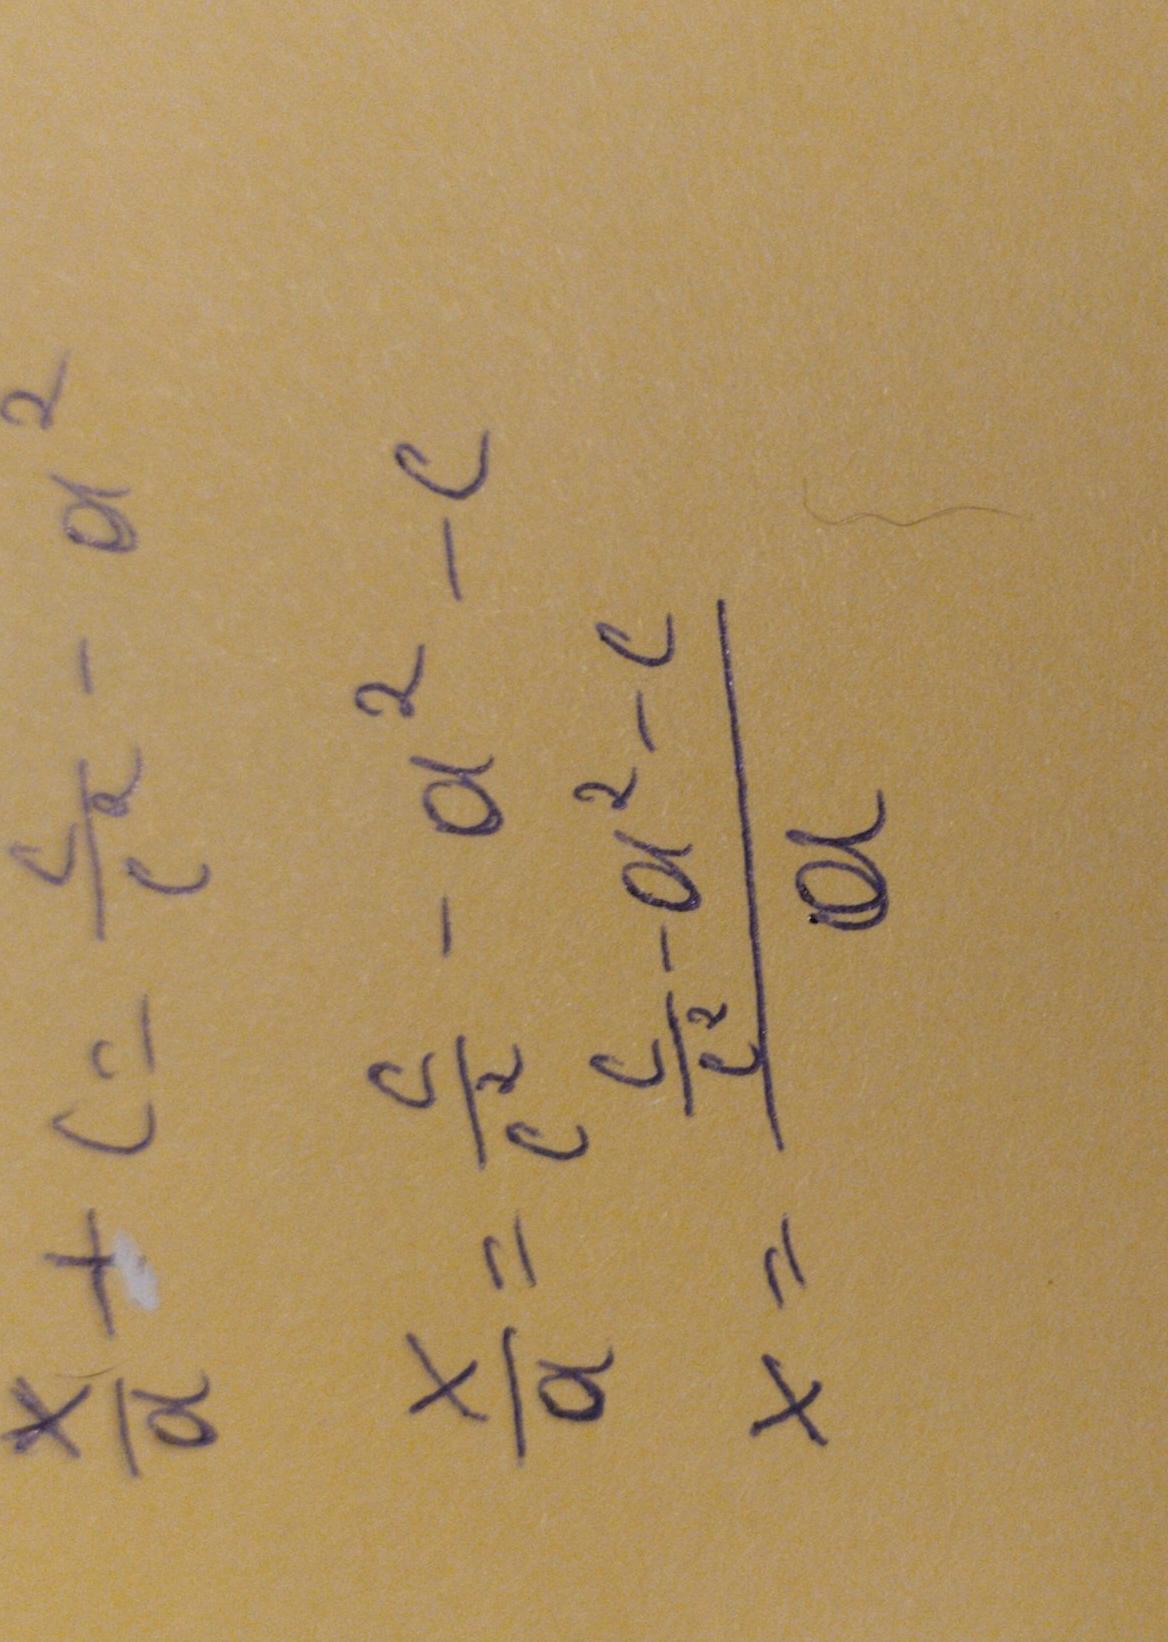 x/a + c = c/c² - a²
x/a = c/c² - a² - c
x = (c/c² - a² - c)/a